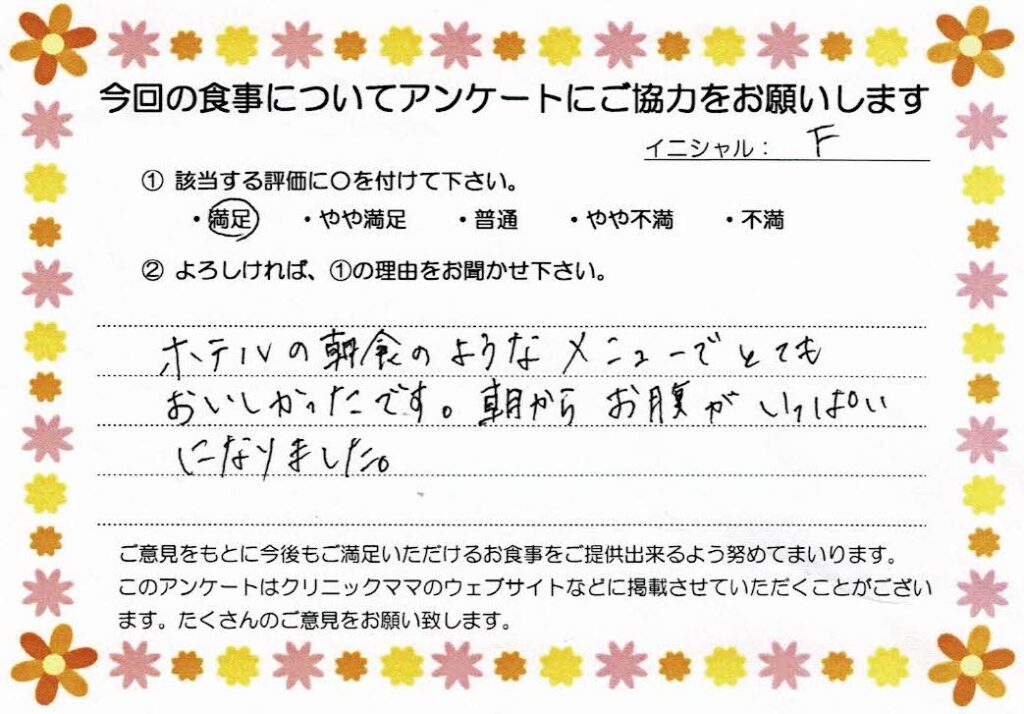 今回の食事についてアンケートにご協力をお願いします
イニシャル： F
① 該当する評価に〇を付けて下さい。
・満足 ・やや満足 ・普通 ・やや不満 ・不満
② よろしければ、①の理由をお聞かせ下さい。
ホテルの朝食のようなメニューでとても
おいしかったです。朝からお腹がいっぱい
になりました。
ご意見をもとに今後もご満足いただけるお食事をご提供出来るよう努めてまいります。
このアンケートはクリニックママのウェブサイトなどに掲載させていただくことがござい
ます。たくさんのご意見をお願い致します。